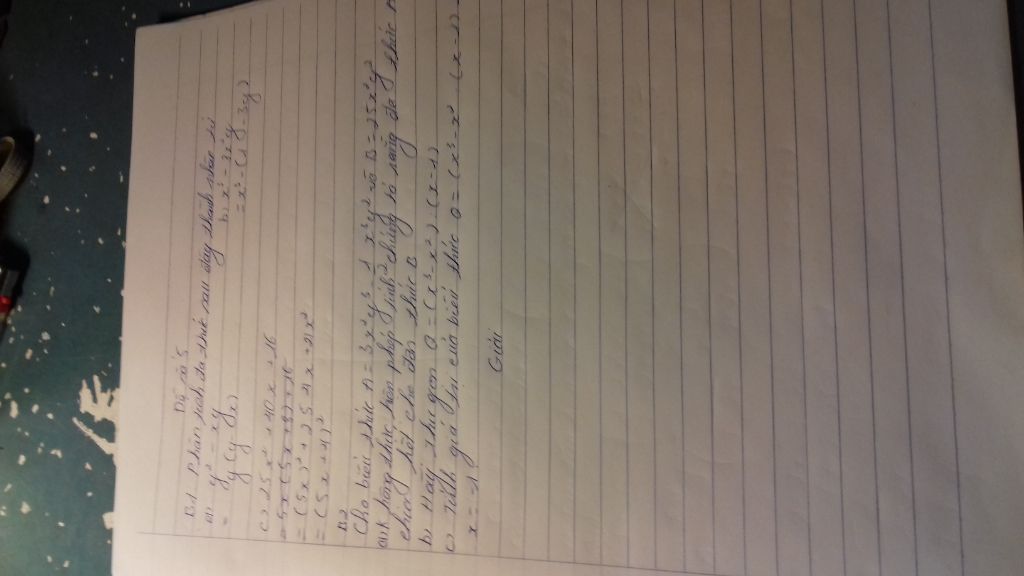 Đề số 5
B.1 Phân tích đa thức sau đây thành nhân tử
a) y² - xy b, x³ - 3x²y
= y (y - x) = x² - (x - 3y)
c) 25x² + 40x + 16
= 5x (5x + 8) + 16
= (5x)² + 2.5.4x + 4²
= (5x + 4)²
B2
Cho biểu thức A = 3x²y³ - 1/2 x³y² và B = 25x²y²
a) K thực hiện phép tính chứng tỏ rằng đa thức A
chia hết cho đơn thức B
b, Hãy thu gọn Q = (x³ - x²) : (x - 1)
c) Tính giá trị của biểu thức Q = (x³ - x² . (x - 1)
x = -1
Giải